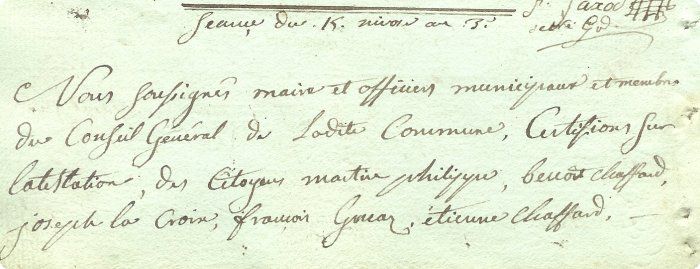 Seance du 15. nivose an 3.e
Nous soussignés maire et officiers municipaux et membres
du Conseil Général de Ladite Commune, Certifions sur
latestation, des Citoyens martin philippe, benoit Chaffard,
joseph la Croix, françois, étienne Chaffard,